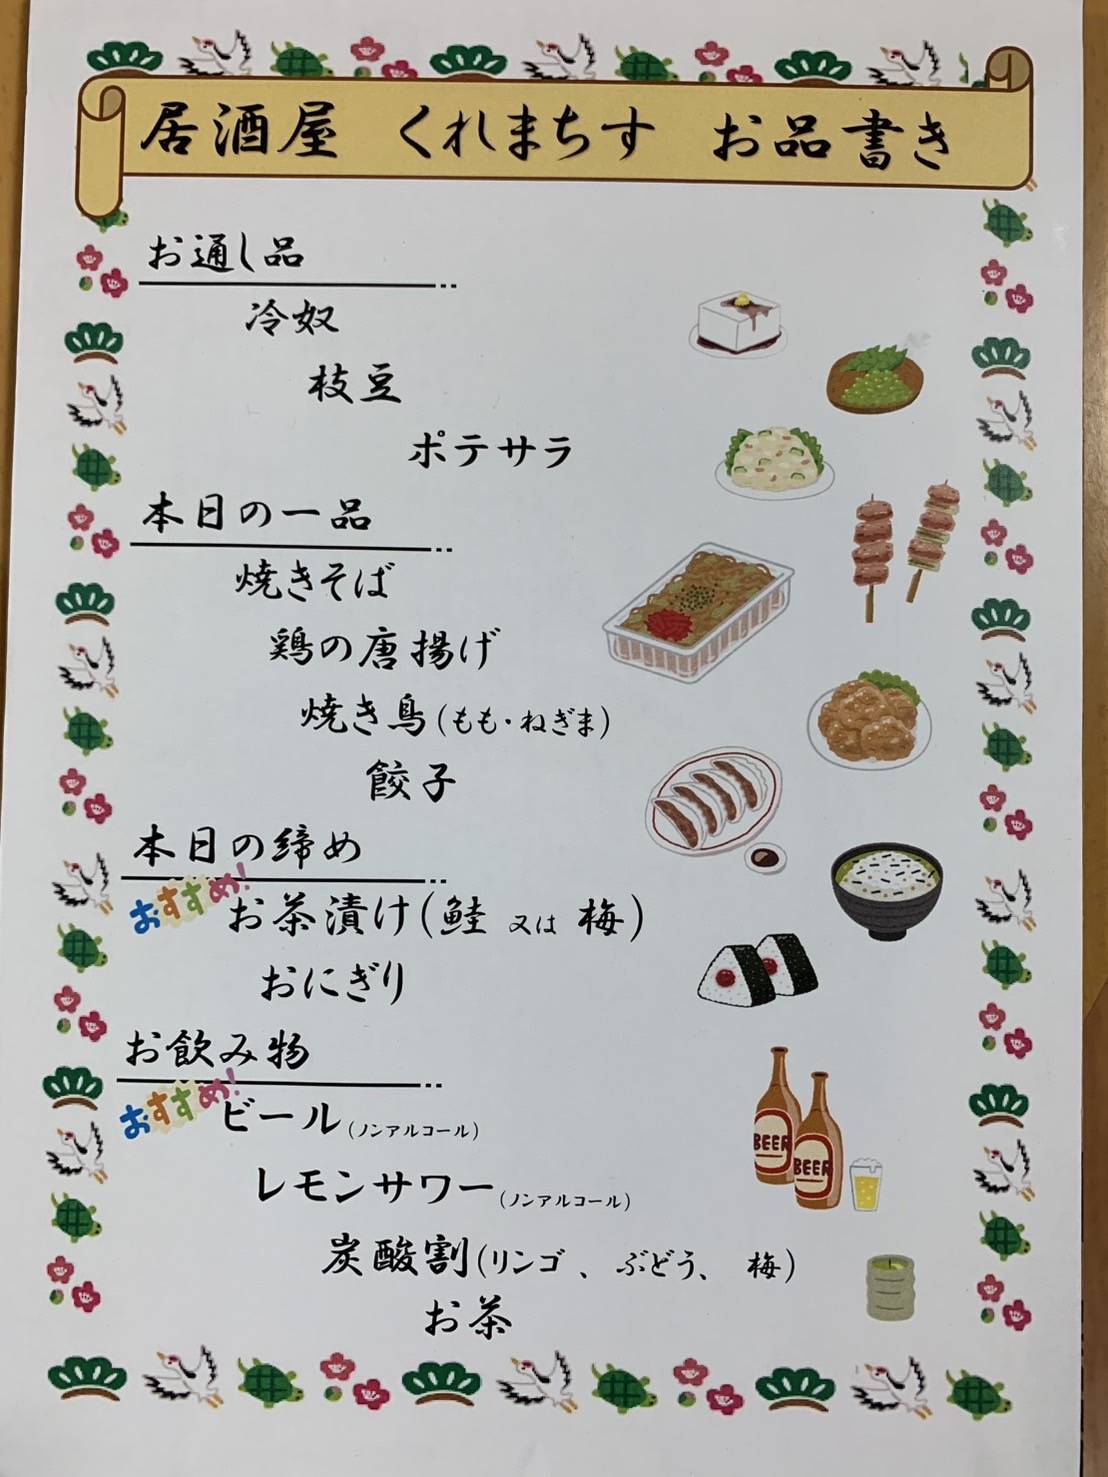 居酒屋 くれまちす お品書き
お通し品
冷奴
枝豆
ポテサラ
本日の一品
焼きそば
鶏の唐揚げ
焼き鳥(もも・ねぎま)
餃子
本日の締め
おすすめ!
お茶漬け(鮭 又は 梅)
おにぎり
お飲み物
おすすめ!
ビール(ノンアルコール)
レモンサワー(ノンアルコール)
炭酸割(リンゴ、ぶどう、梅)
お茶
BEER
BEER